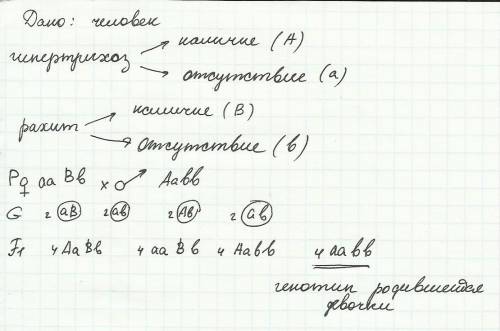 Дано: человек
гипертрихоз
наличие (А)
отсутствие (а)
рахит
наличие (В)
отсутствие (в)
P♀ aaBв x ♂ Aaвв
G г aB г aв г Aв г aв
F1 ч AaBв ч aaBв ч Aaвв ч aaвв
генотип родившейся
девочки